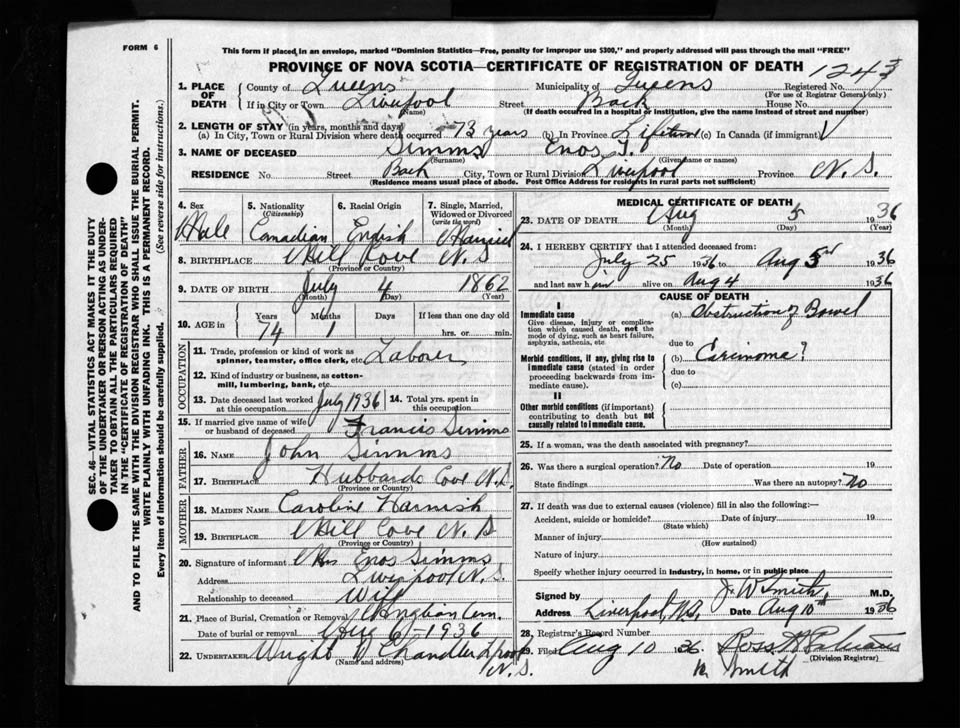 FORM 6
This form if placed in an envelope, marked "Dominion Statistics—Free, penalty for improper use $300," and properly addressed will pass through the mail "FREE"
PROVINCE OF NOVA SCOTIA—CERTIFICATE OF REGISTRATION OF DEATH
1243
1. PLACE OF DEATH County of Queens Municipality of Queens Registered No.
(For use of Registrar General only)
If in City or Town Liverpool Street Back House No.
(Name) (If death occurred in a hospital or institution, give the name instead of street and number)
2. LENGTH OF STAY (in years, months and days)
(a) In City, Town or Rural Division where death occurred 73 years (b) In Province Lifetime (c) In Canada (if immigrant)
3. NAME OF DECEASED Simms Enos T.
(Surname) (Given name or names)
RESIDENCE No. Street Back City, Town or Rural Division Liverpool Province N.S.
(Residence means usual place of abode. Post Office Address for residents in rural parts not sufficient)
SEC. 46—VITAL STATISTICS ACT MAKES IT THE DUTY
OF THE UNDERTAKER OR PERSON ACTING AS UNDER-
TAKER TO OBTAIN ALL THE PARTICULARS REQUIRED
IN THE "CERTIFICATE OF REGISTRATION OF DEATH"
AND TO FILE THE SAME WITH THE DIVISION REGISTRAR WHO SHALL ISSUE THE BURIAL PERMIT.
WRITE PLAINLY WITH UNFADING INK. THIS IS A PERMANENT RECORD.
Every item of information should be carefully supplied. (See reverse side for instructions.)
4. Sex 5. Nationality (Citizenship) 6. Racial Origin 7. Single, Married, Widowed or Divorced (write the word)
Male Canadian English Married
8. BIRTHPLACE Mill Cove N.S
(Province or Country)
9. DATE OF BIRTH July 4 1862
(Month) (Day) (Year)
10. AGE in Years Months Days If less than one day old
74 1 hrs. or min.
OCCUPATION
11. Trade, profession or kind of work as spinner, teamster, office clerk, etc. Laborer
12. Kind of industry or business, as cotton-mill, lumbering, bank, etc.
13. Date deceased last worked at this occupation July 1936 14. Total yrs. spent in this occupation
15. If married give name of wife or husband of deceased Francis Simms
FATHER
16. NAME John Simms
17. BIRTHPLACE Hubbards Cove N.S.
(Province or Country)
MOTHER
18. MAIDEN NAME Caroline Harnish
19. BIRTHPLACE Mill Cove N.S
(Province or Country)
20. Signature of informant Mrs Enos Simms
Address Liverpool N.S.
Relationship to deceased Wife
21. Place of Burial, Cremation or Removal Anglican Cem.
Date of burial or removal Aug 6 1936
22. UNDERTAKER Wright Chandler L'pool
(Name and address) N.S.
MEDICAL CERTIFICATE OF DEATH
23. DATE OF DEATH Aug 5 1936
(Month) (Day) (Year)
24. I HEREBY CERTIFY that I attended deceased from:
July 25 1936 to Aug 5 1936
and last saw him alive on Aug 4 1936
CAUSE OF DEATH
I
Immediate cause
Give disease, injury or complication which caused death, not the mode of dying, such as heart failure, asphyxia, asthenia, etc.
(a) Obstruction of Bowel
due to
Morbid conditions, if any, giving rise to immediate cause (stated in order proceeding backwards from immediate cause).
(b) Carcinoma?
due to
(c)
II
Other morbid conditions (if important) contributing to death but not causally related to immediate cause.
25. If a woman, was the death associated with pregnancy?
26. Was there a surgical operation? No Date of operation 19
State findings Was there an autopsy? No
27. If death was due to external causes (violence) fill in also the following:—
Accident, suicide or homicide? Date of injury 19
(State which)
Manner of injury
(How sustained)
Nature of injury
Specify whether injury occurred in industry, in home, or in public place
Signed by J. W Smith, M.D.
Address Liverpool, N.S, Date Aug 10th 1936
28. Registrar's Record Number
29. Filed Aug 10 1936.
(Division Registrar)
Smith